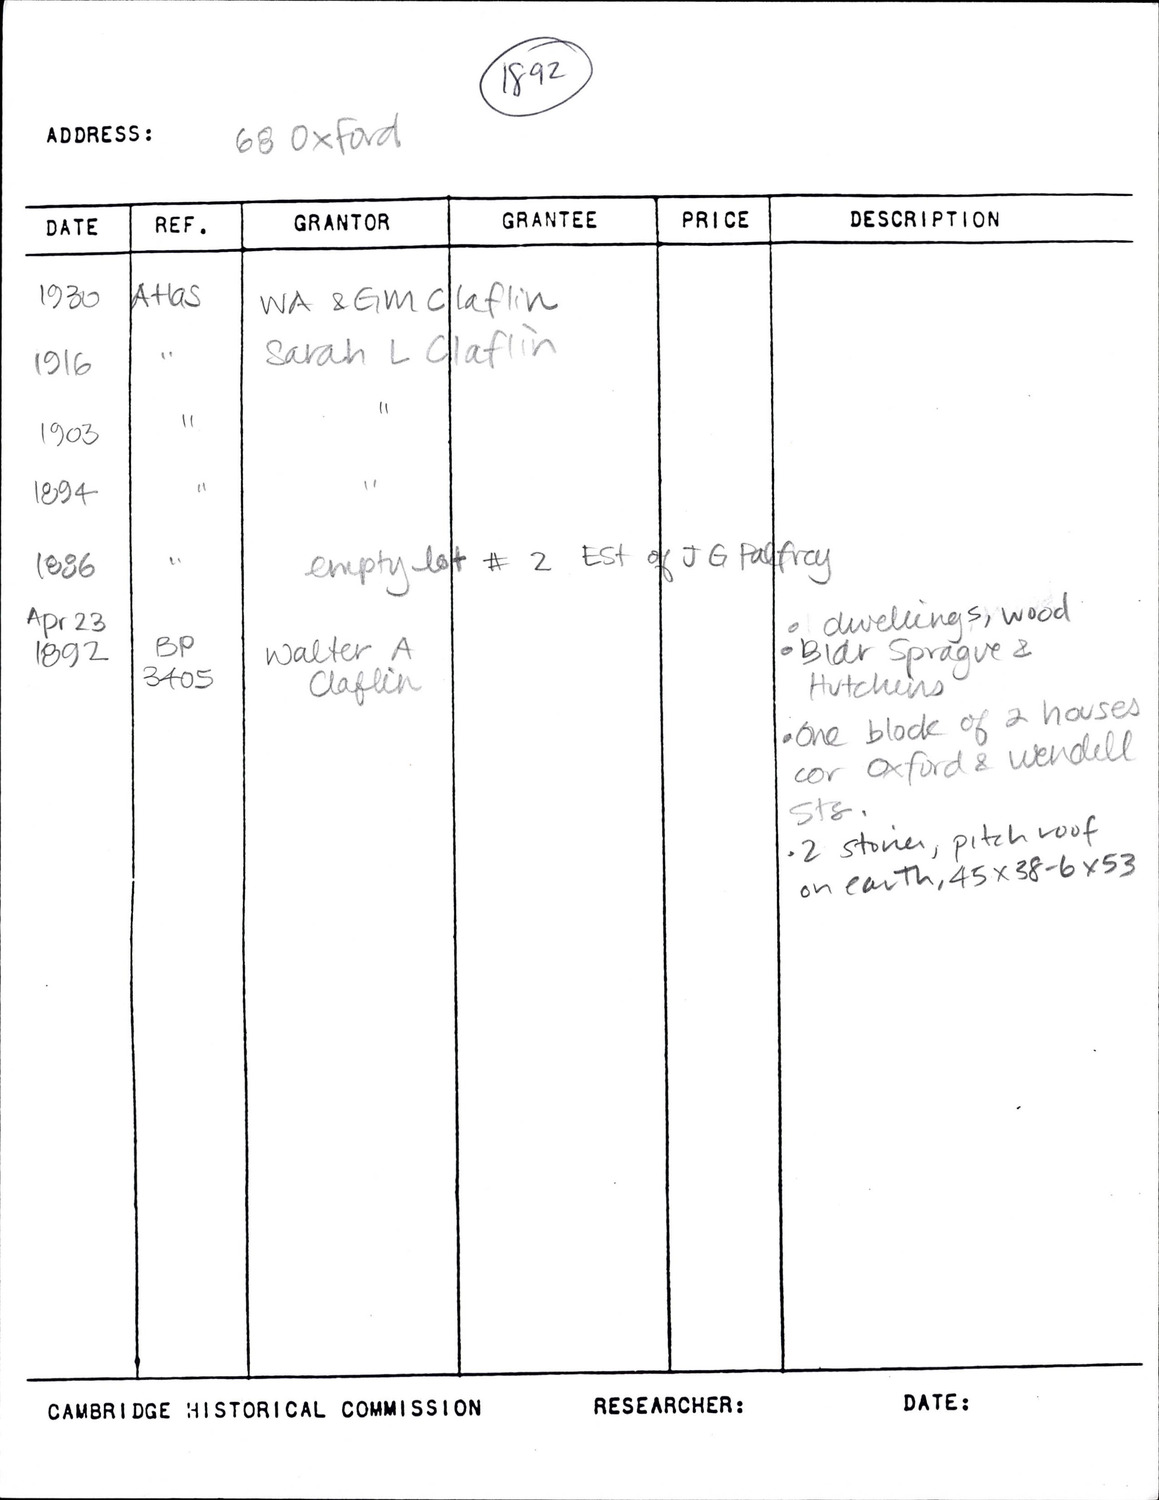 1892
ADDRESS: 68 Oxford
DATE REF. GRANTOR GRANTEE PRICE DESCRIPTION
1930 Atlas WA & GM Claflin
1916 " Sarah L Claflin
1903 " "
1894 " "
1886 " empty lot # 2 Est of J G Palfrey
Apr 23 • dwellings, wood
1892 BP Walter A • Bldr Sprague &
3405 Claflin Hutchins
• One block of 2 houses
cor Oxford & Wendell
Sts.
• 2 stories, pitch roof
on earth, 45 x 38-6 x 53
CAMBRIDGE HISTORICAL COMMISSION RESEARCHER: DATE: